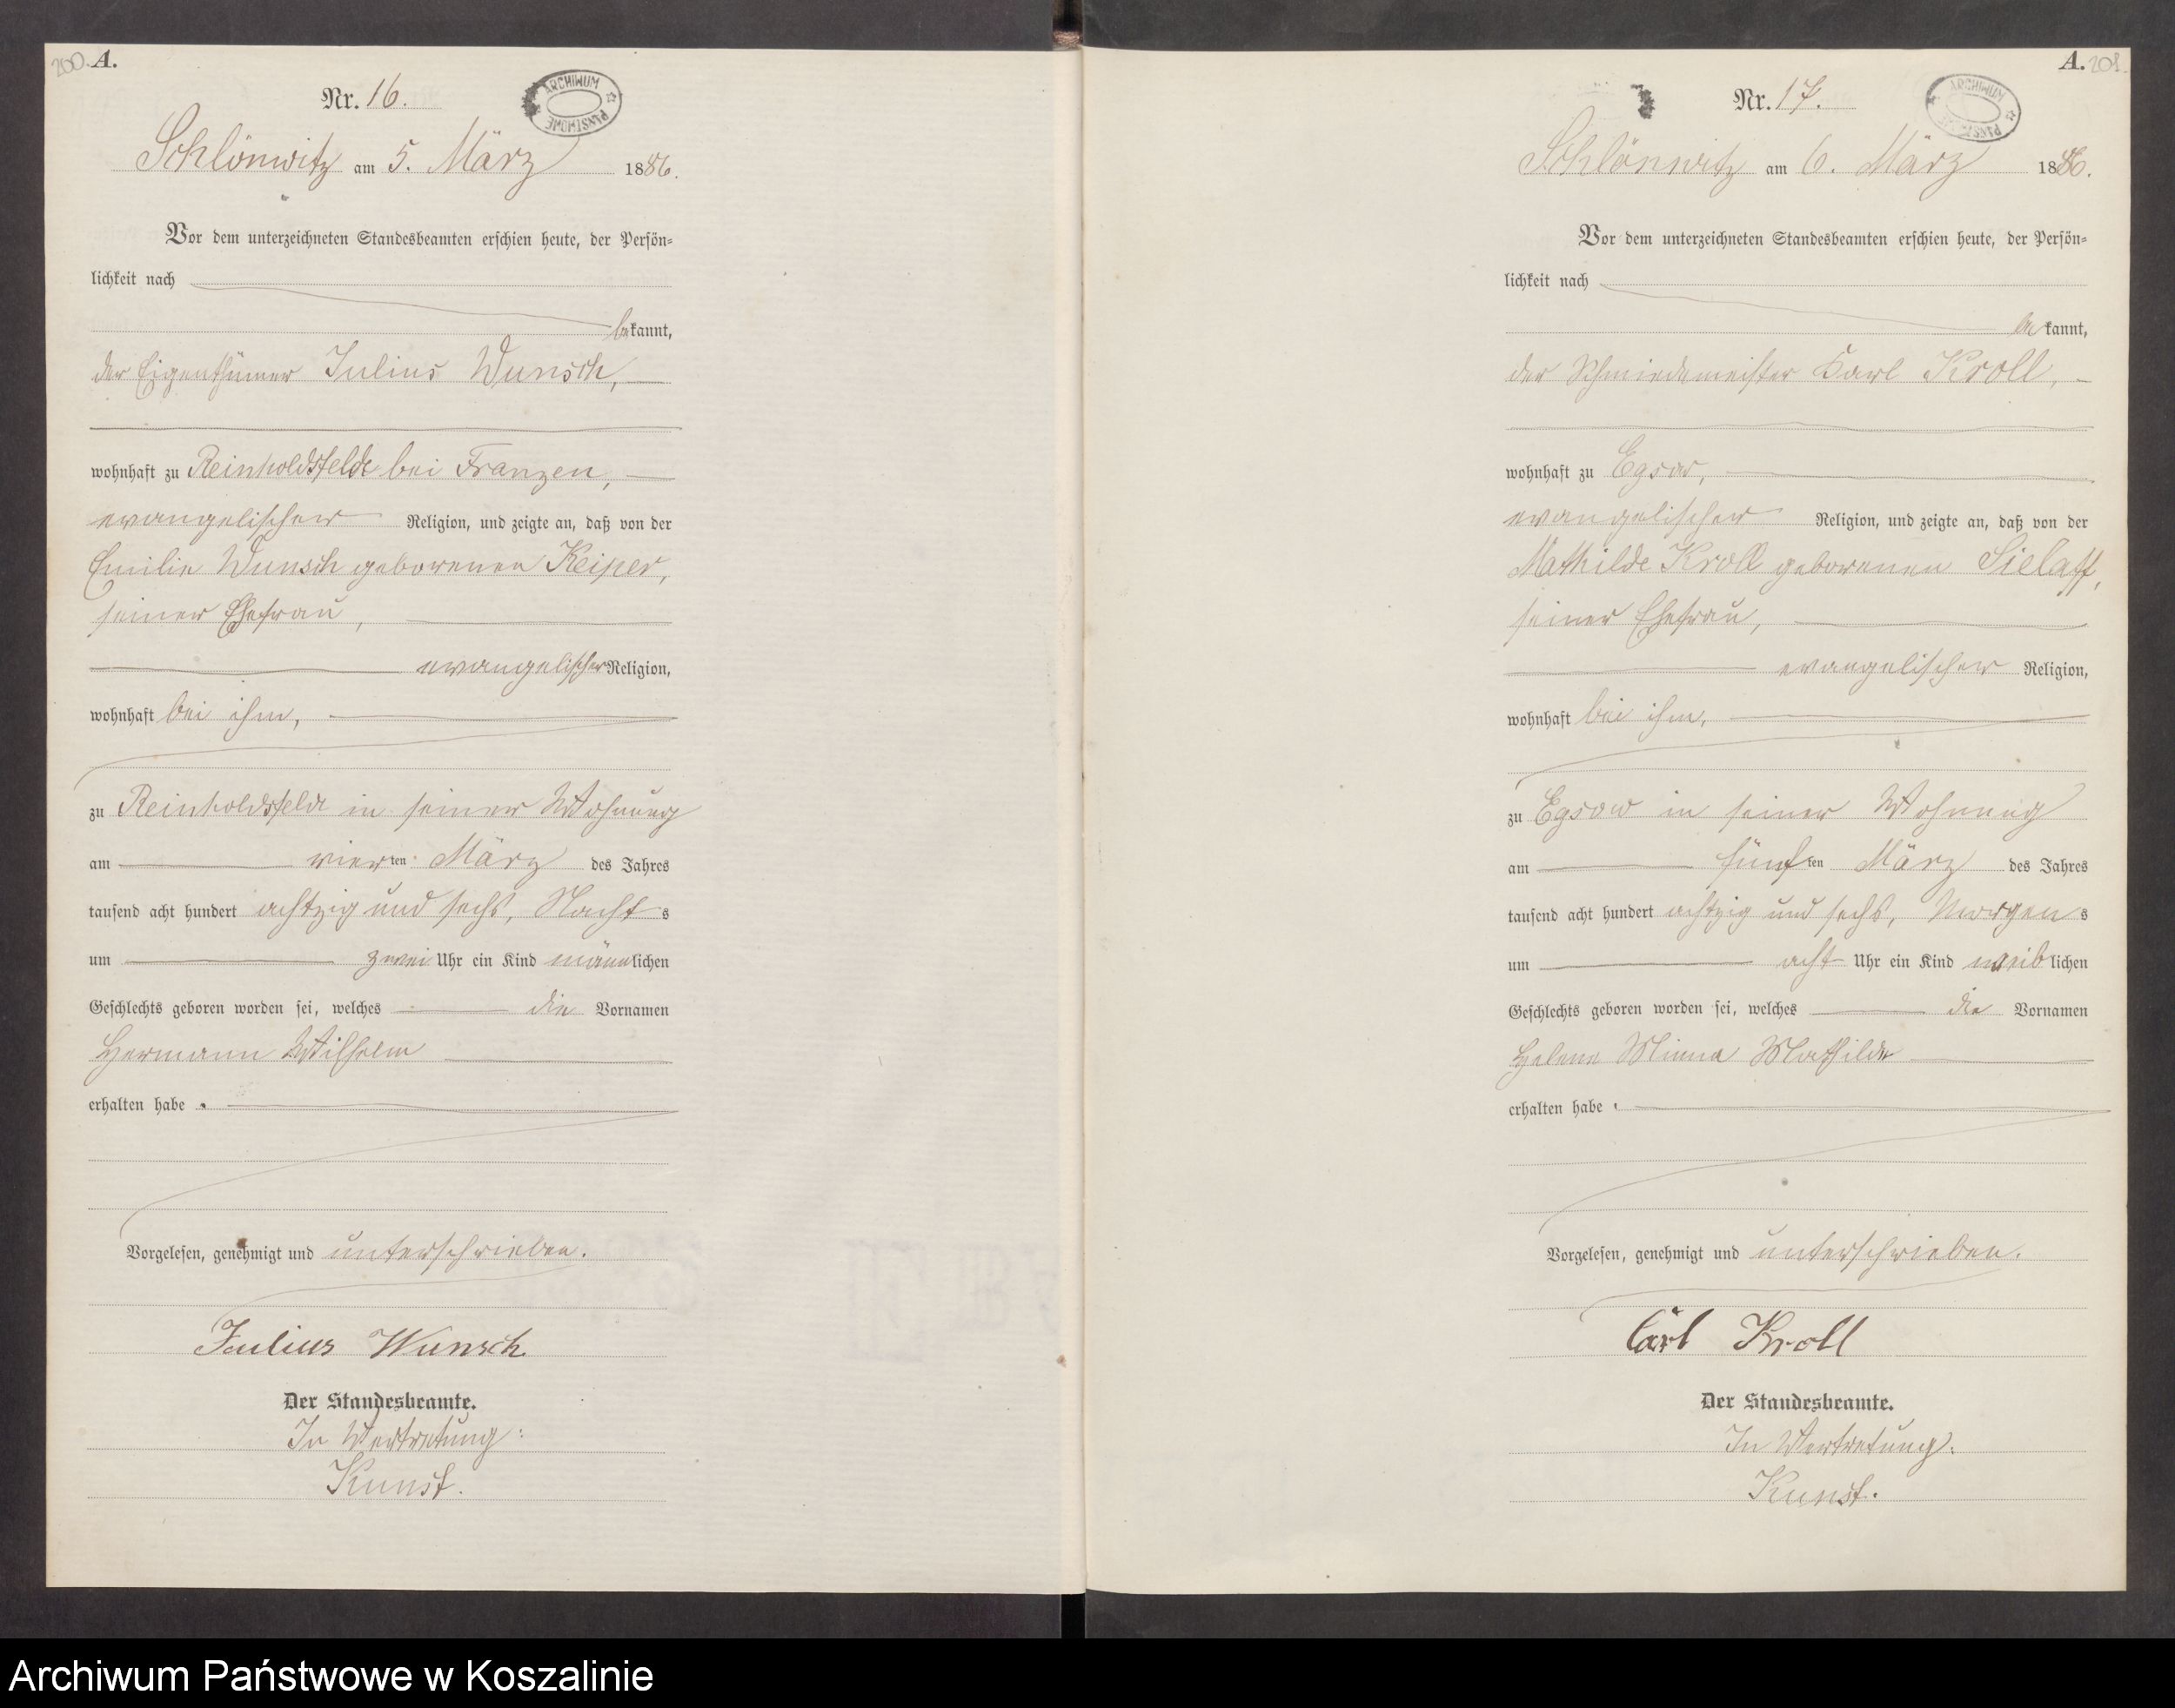 200. A.
Nr. 16.
ARCHIWUM PAŃSTWOWE
Schlönwitz am 5. März 1886.
Vor dem unterzeichneten Standesbeamten erschien heute, der Persön=
lichkeit nach
bekannt,
der Eigenthümer Julius Wunsch,
wohnhaft zu Reinholdsfelde bei Franzen,
evangelischer Religion, und zeigte an, daß von der
Emilie Wunsch geborenen Keiper,
seiner Ehefrau,
evangelischer Religion,
wohnhaft bei ihm,
zu Reinholdsfelde in seiner Wohnung
am vierten März des Jahres
tausend acht hundert achtzig und sechs, Nachts
um zwei Uhr ein Kind männlichen
Geschlechts geboren worden sei, welches die Vornamen
Hermann Wilhelm
erhalten habe.
Vorgelesen, genehmigt und unterschrieben.
Julius Wunsch
Der Standesbeamte.
In Vertretung:
Kunst.
A. 201.
Nr. 17.
ARCHIWUM PAŃSTWOWE
Schlönwitz am 6. März 1886.
Vor dem unterzeichneten Standesbeamten erschien heute, der Persön=
lichkeit nach
bekannt,
der Schmiedemeister Karl Kroll,
wohnhaft zu Egsow,
evangelischer Religion, und zeigte an, daß von der
Mathilde Kroll geborenen Sielaff,
seiner Ehefrau,
evangelischer Religion,
wohnhaft bei ihm,
zu Egsow in seiner Wohnung
am fünften März des Jahres
tausend acht hundert achtzig und sechs, Morgens
um acht Uhr ein Kind weiblichen
Geschlechts geboren worden sei, welches die Vornamen
Helene Minna Mathilde
erhalten habe.
Vorgelesen, genehmigt und unterschrieben.
Carl Kroll
Der Standesbeamte.
In Vertretung:
Kunst.
Archiwum Państwowe w Koszalinie